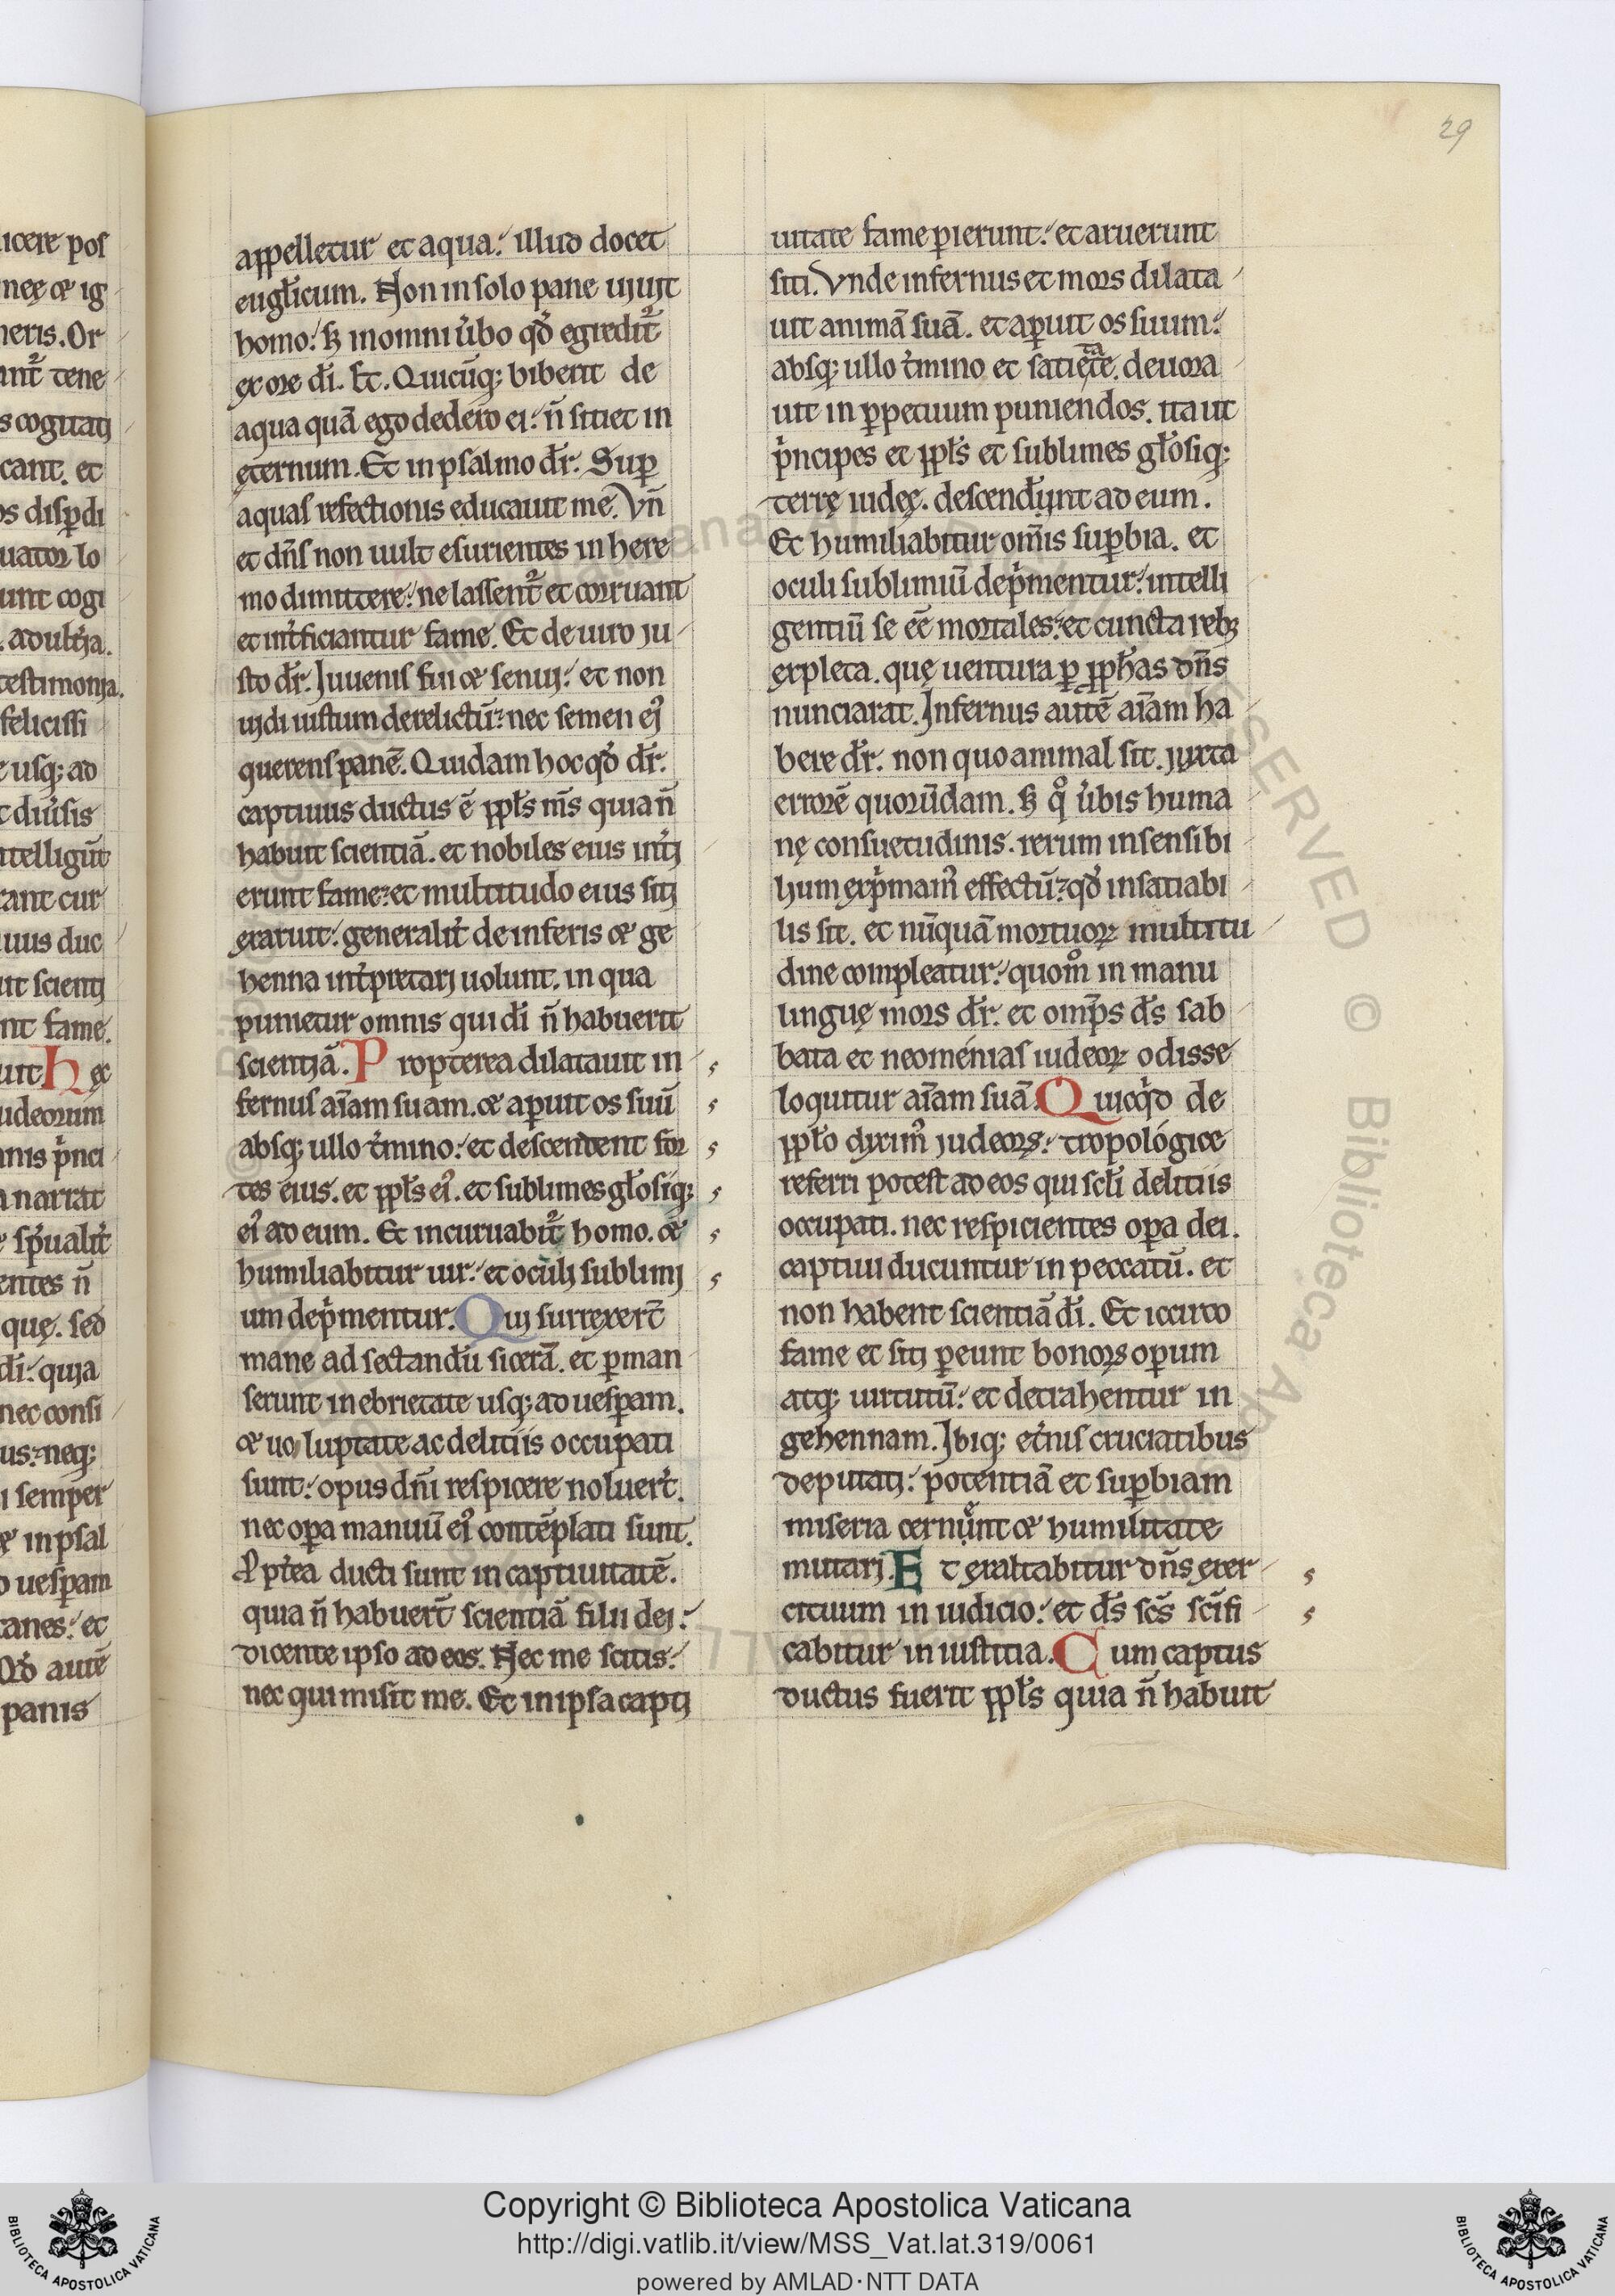 29
icere pos
neę & ig
neris. Or
ant᷑ tene
s cogitatj
cant. et
os disꝑdi
uator lo
unt cogi
. adult̓ja.
testimonja.
felicissi
e usq; ad
t diu̓sis
ntelligūt
rant cur
iuus duc
it scientj
nt fame.
uit hęc
udeorum
nis pͥnci
narrat
sp̄ualit̓
entes n̄
quę. sed
dī: quja
nec consi
us: neq;
i semper
ę in psal
o uesꝑam
tanes: et
Qd̓ autē
panis
appelletur et aqua: illud docet
eugl̓icum. Non in solo pane ujujt
homo: sꝫ in omni u̓bo qd̓ egredit᷑
ex ore dī. Et. Quicūq; biberit de
aqua quā ego dedero ei: n̄ sitiet in
ęternum. Et in psalmo dr̄. Suꝑ
aquas refectionis educauit me. Vn̄
et dn̄s non uult esurientes in here
mo dimittere: ne lassent᷑ et corruant
et int̓ficiantur fame. Et de uiro ju
sto dr̄. Juuenis fui & senuj: et non
ujdi iustum derelictū: nec semen ej᷒
querens panē. Quidam hoc qd̓ dr̄.
captiuus ductus ē ppl̓s m̄s quia n̄
habuit scientiā. et nobiles eius int̓j
erunt fame: et multitudo eius sitj
exaruit: generalit̓ de inferis & ge
henna int̓pretarj uolunt. in qua
punietur omnis qui dī n̄ habuerit
scientjā. Propterea dilatauit in
fernus aīam suam. & aperuit os suū
absq; ullo t̓mino: et descendent for
tes eius. et ppl̓s ej᷒. et sublimes gl̓osiq;
ej᷒ ad eum. Et incuruabit᷑ homo. &
humiliabitur uir: et oculj sublimj
um depͥmentur. Quj surrexert̄
mane ad sectandū sicerā. et ꝑman
serunt in ebrietate usq; ad uesꝑam.
& uoluptate ac delitiis occupati
sunt: opus dn̄i respicere noluer̄t.
nec oꝑa manuū ej᷒ contēplati sunt.
Ꝓpt̓ea ducti sunt in captiuitatē.
quia n̄ habuert̄ scientiā filii dei:
dicente ipso ad eos. Nec me scitis:
nec qui misit me. Et in ipsa captj
uitate fame perierunt: et aruerunt
siti. Vnde infernus et mors dilata
uit animā suā. et aperuit os suum:
absq; ullo t̓mino et satietate. deuora
uit in ꝑpetuum puniendos. ita ut
pͥncipes et ppl̓s et sublimes gl̓osiq;
terrę iudeę. descendunt ad eum.
Et humiliabitur om̄is suꝑbia. et
oculi sublimiū depͥmentur: intelli
gentiū se eē mortales: et cuncta rebꝫ
expleta. quę uentura ꝑ ꝓph̓as dn̄s
nunciarat. Infernus autē aīam ha
bere dr̄. non quo animal sit. juxta
errorē quorūdam. sꝫ qͦ u̓bis huma
nę consuetudinis. rerum insensibi
lium expͥmam᷒ effectū: qd̓ insatiabi
lis sit. et nūquā mortuoꝝ multitu
dine compleatur: quom̊ in manu
linguę mors dr̄. et omp̄s ds̄ sab
bata et neoménias iudeoꝝ odisse
loquitur aīam suā. Quicqͥd de
ppl̓o dixim᷒ judeoꝝ: tropológice
referri potest ad eos qui scl̓i delitiis
occupati. nec respicientes oꝑa dei.
captiui ducuntur in peccatū. et
non habent scientiā dī. Et iccirco
fame et sitj ꝑeunt bonoꝝ oꝑum
atq; uirtutū: et detrahentur in
gehennam. Jbiq; et̓nis cruciatibus
deputatj: potentiā et suꝑbiam
miseria cernunt & humilitate
mutarj. Et exaltabitur dn̄s exer
cituum in iudicio: et ds̄ scs̄ sc̄ifi
cabitur in iustitia. Cum captus
ductus fuerit ppl̓s quia n̄ habuit
Copyright © Biblioteca Apostolica Vaticana
http://digi.vatlib.it/view/MSS_Vat.lat.319/0061
powered by AMLAD·NTT DATA
BIBLIOTECA APOSTOLICA VATICANA
BIBLIOTECA APOSTOLICA VATICANA